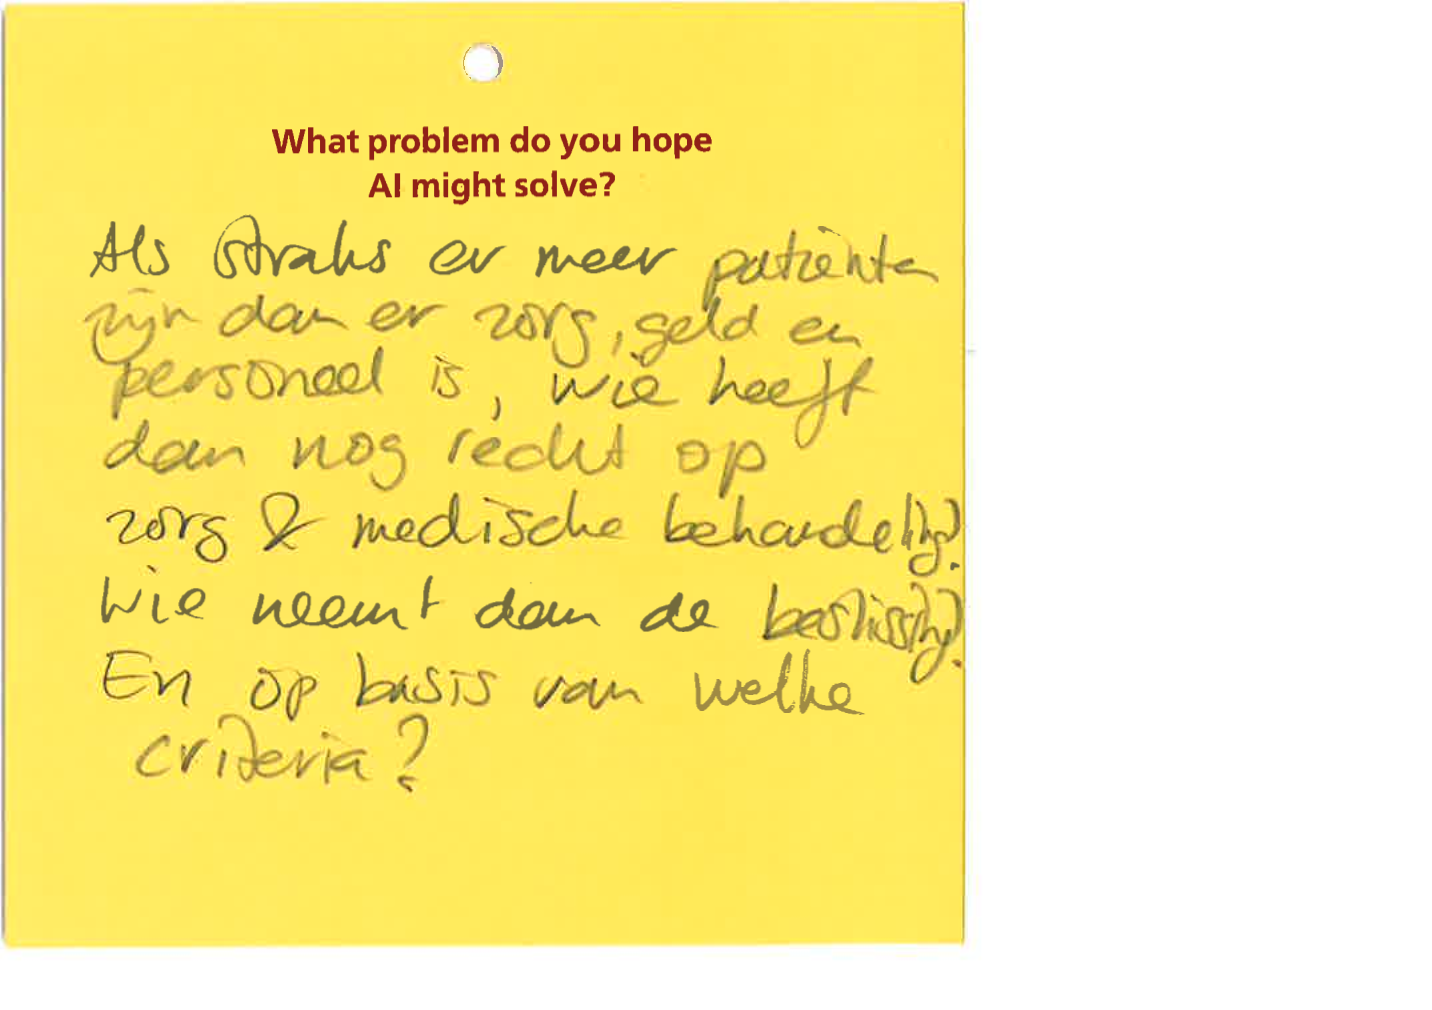 What problem do you hope
AI might solve?
Als straks er meer patiënten
zijn dan er zorg, geld en
personeel is, wie heeft
dan nog recht op
zorg & medische behandeling?
Wie neemt dan de beslissing?
En op basis van welke
criteria?